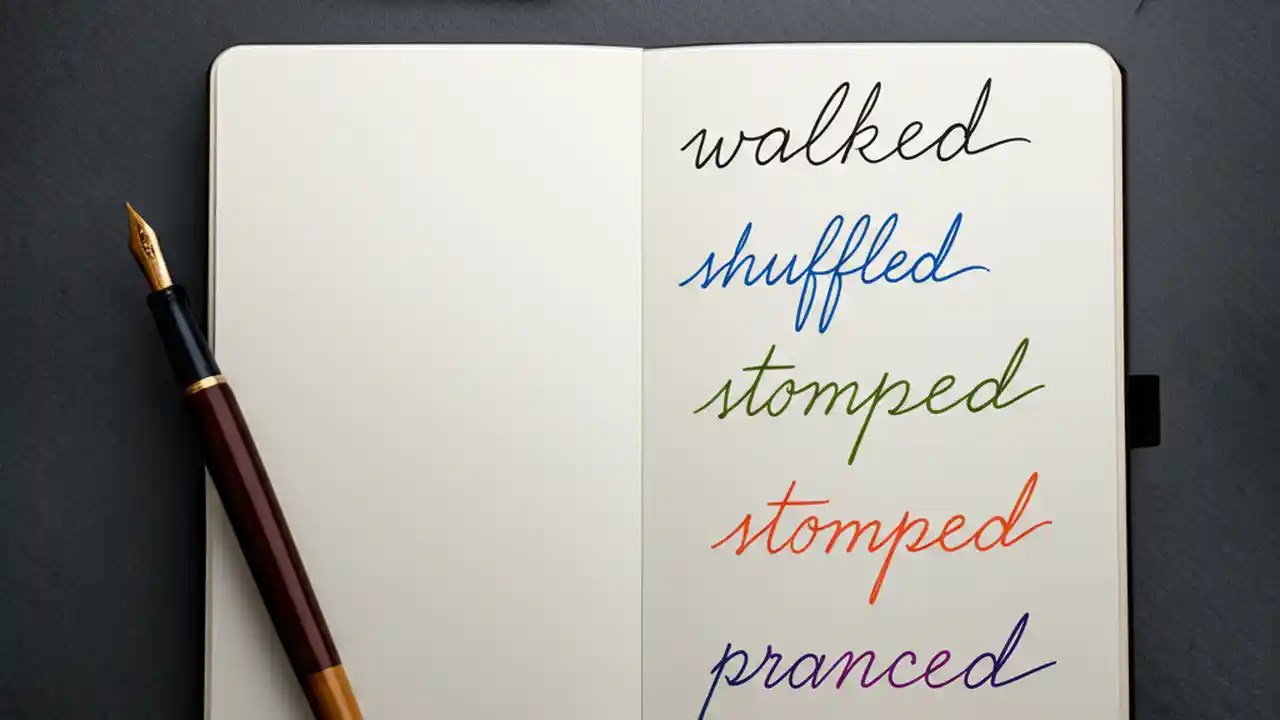 walked
shuffled
stomped
stomped
pranced